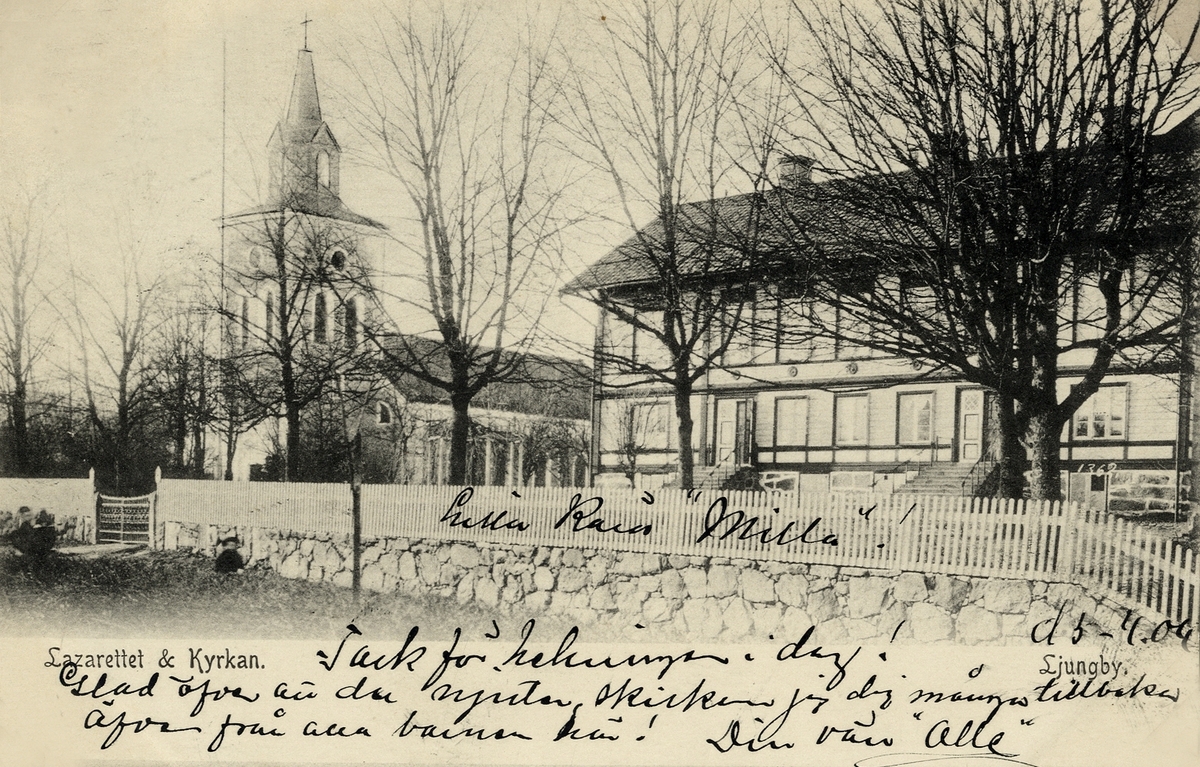 1369
Lilla Kära "Milla"!
d 5-4.04
Lazarettet & Kyrkan.
Tack för helsningen i dag!
Ljungby.
Glad öfver att du njuter, skickar jag dig många tillbaka
äfven från alla barnen här! Din vän "Alle"